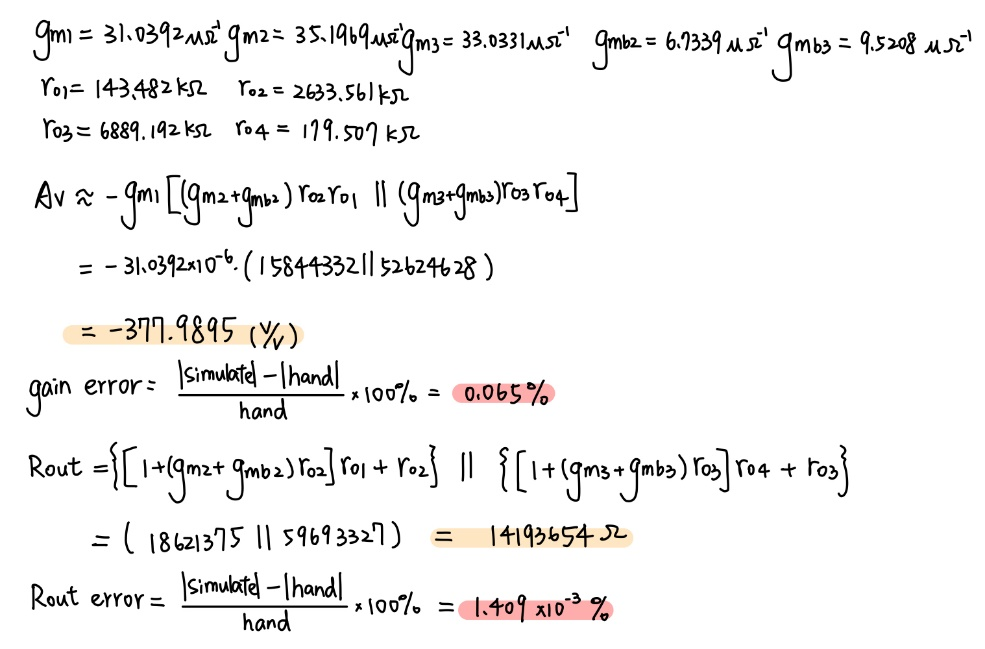 gm1 = 31.0392 μΩ⁻¹ gm2 = 35.1969 μΩ⁻¹ gm3 = 33.0331 μΩ⁻¹ gmb2 = 6.7339 μΩ⁻¹ gmb3 = 9.5208 μΩ⁻¹
ro1 = 143.482 kΩ ro2 = 2633.561 kΩ
ro3 = 6889.192 kΩ ro4 = 179.507 kΩ
Av ≈ -gm1 [(gm2+gmb2) ro2 ro1 || (gm3+gmb3) ro3 ro4]
= -31.0392×10⁻⁶·(15844332 || 52624628)
= -377.9895 (V/V)
gain error = (|simulate| - |hand|) / hand × 100% = 0.065%
Rout = {[1+(gm2+gmb2) ro2] ro1 + ro2} || {[1+(gm3+gmb3) ro3] ro4 + ro3}
= (18621375 || 59693327) = 14193654 Ω
Rout error = (|simulate| - |hand|) / hand × 100% = 1.409 ×10⁻³ %